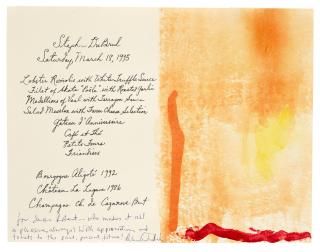 Saturday, March 18, 1995
Lobster Raviolis with White Truffle Sauce
Filet of Skate "Poêlé" with Roasted Garlic
Medallions of Veal with Tarragon Sauce
Salad Mesclun with Farm Cheese Selection
Gâteau d'Anniversaire
Café et Thé
Petits Fours
Friandises
Bourgogne Aligoté 1992
Château La Lagune 1986
Champagne Ch. de Cazanove Brut
for
who makes it all
always! With appreciation and
to the past, present, future!